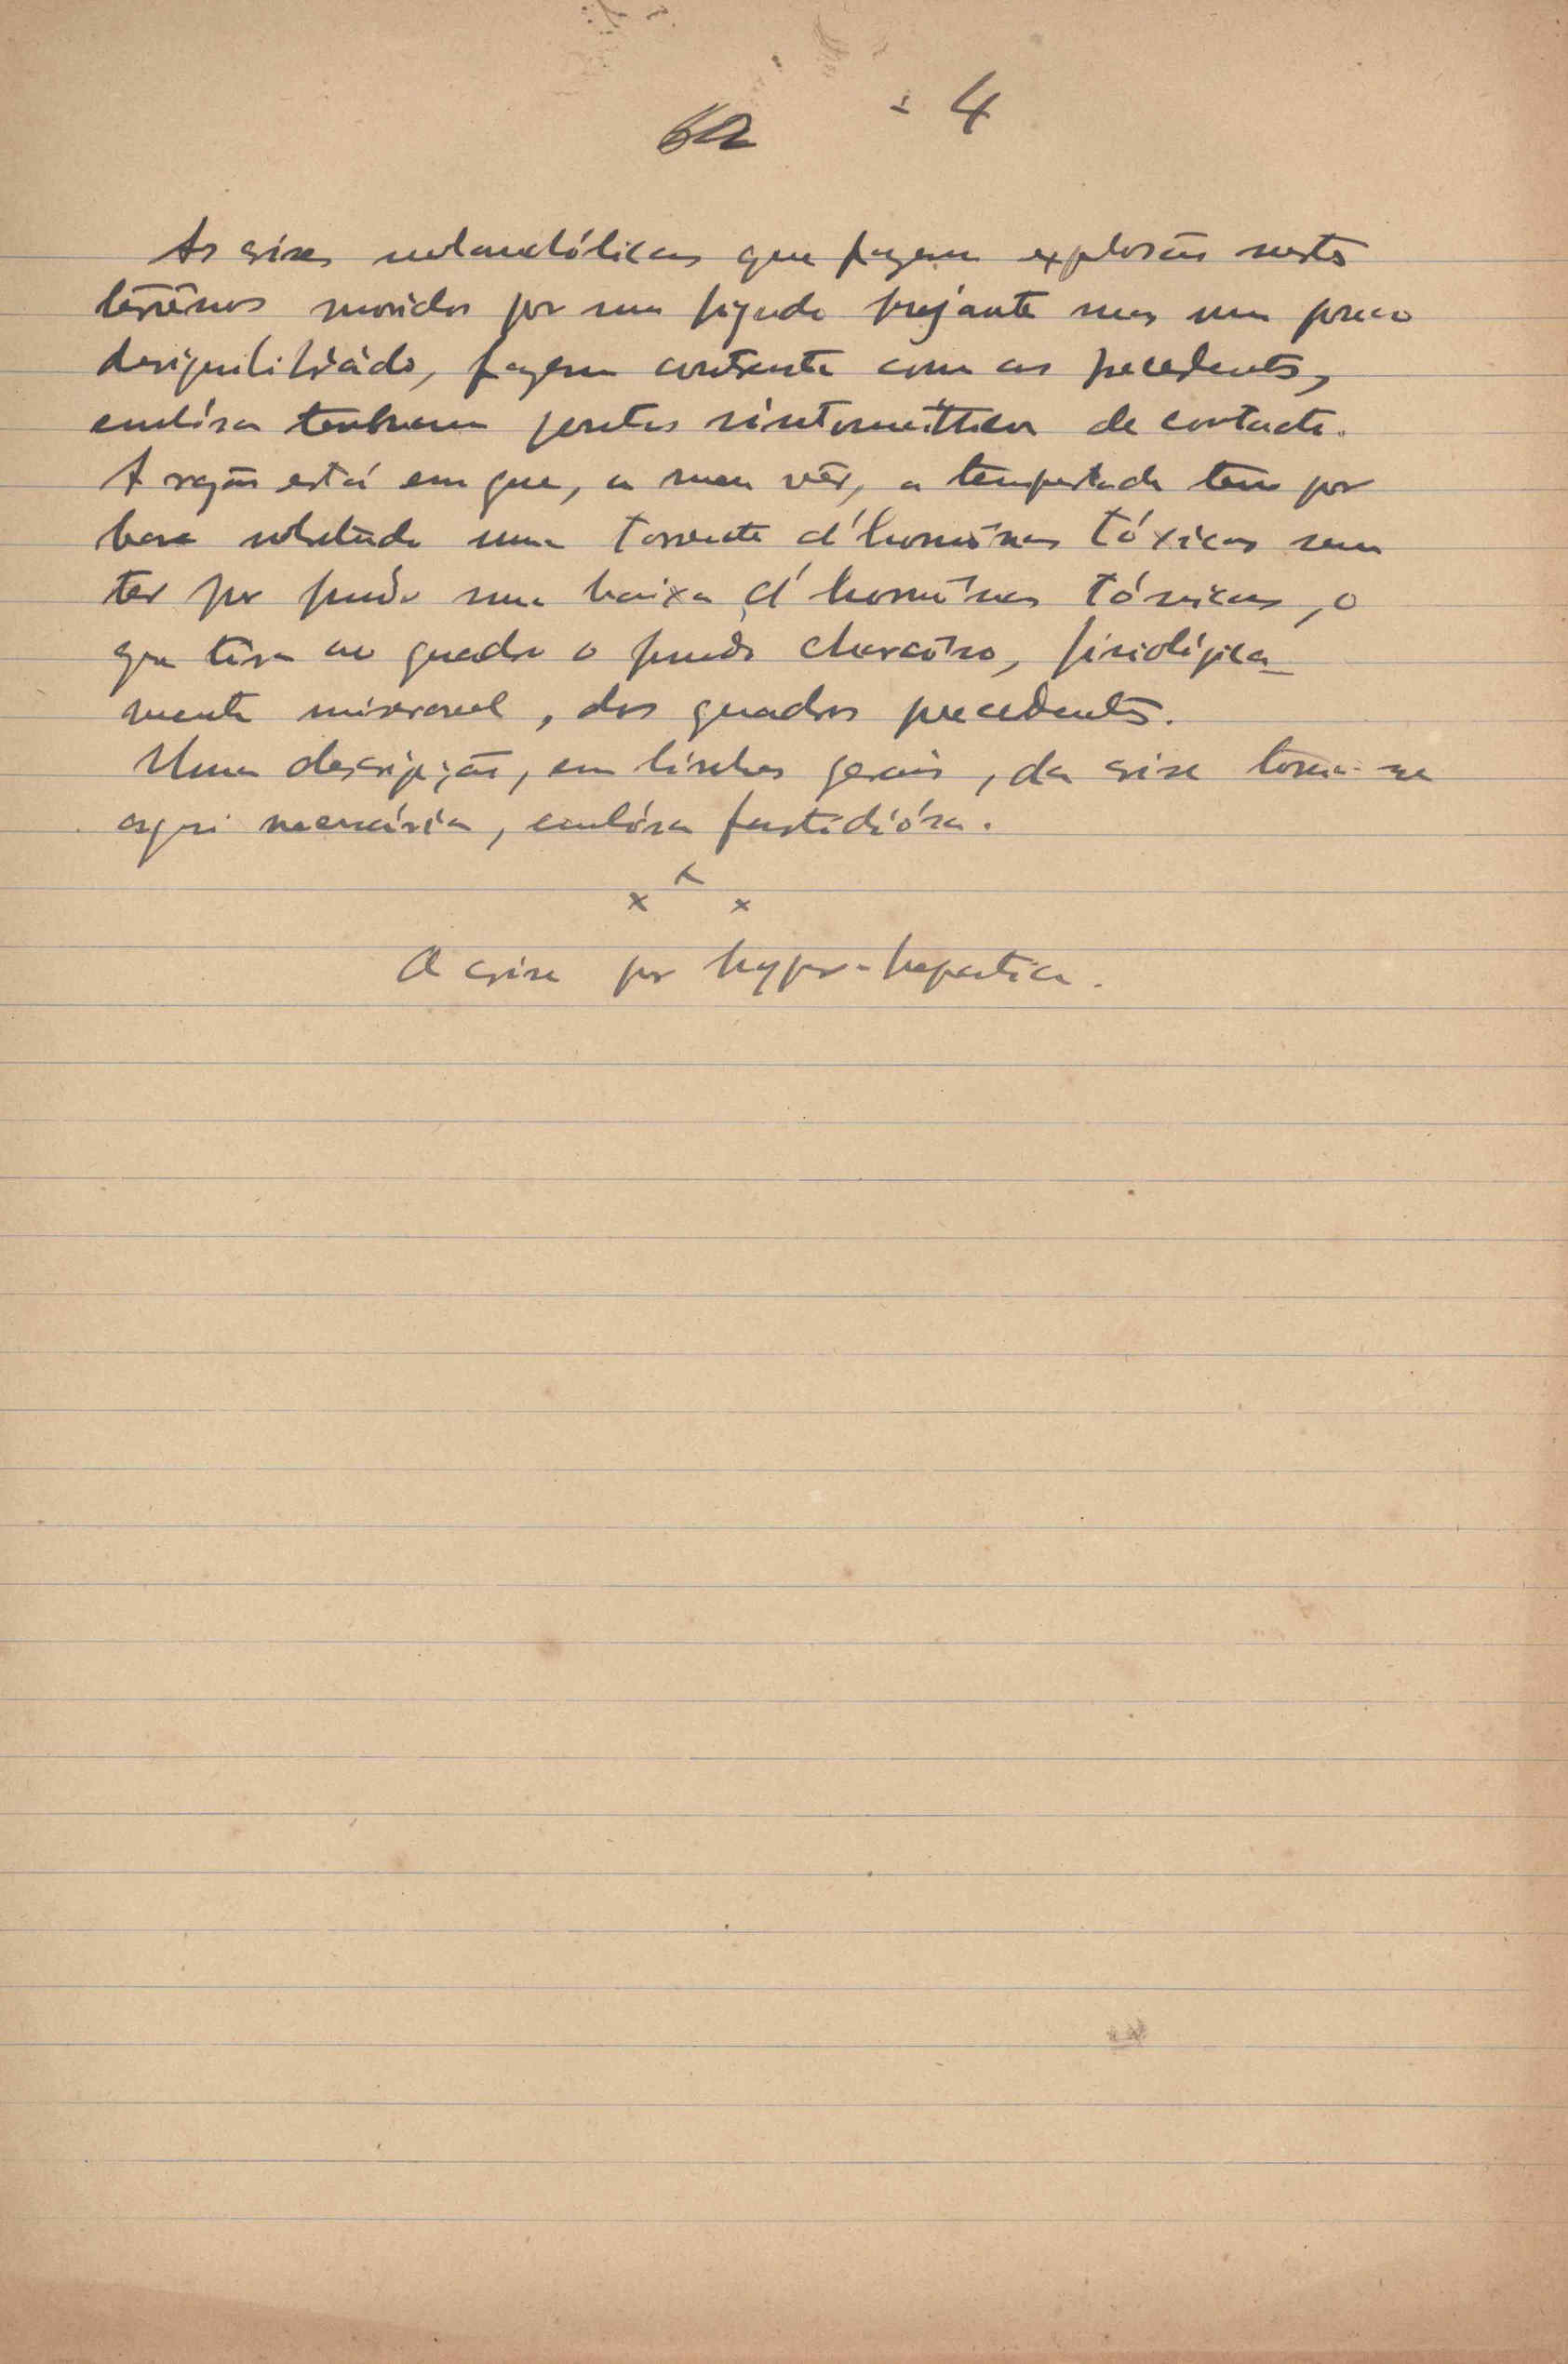 62 = 4
As crises melancólicas que fazem explosão nestes
terrênos movidos por um fígado pujante mas um pouco
desiquilibrádo, fazem contraste com as precedentes,
embóra tenham pontos sintomáticos de contacto.
A razão está em que, a meu vêr, a tempestade tem por
base sobretudo uma torrente d'hormônas tóxicas sem
ter por fundo uma baixa d'hormônas tónicas, o
que tira ao quadro o fundo charcôso, fisiológica-
mente miseravel, dos quadros precedentes.
Uma descripção, em linhas gerais, da crise torna-se
aqui necessária, embóra fastidiósa.
x x x
A crise por hyper-hepatica.